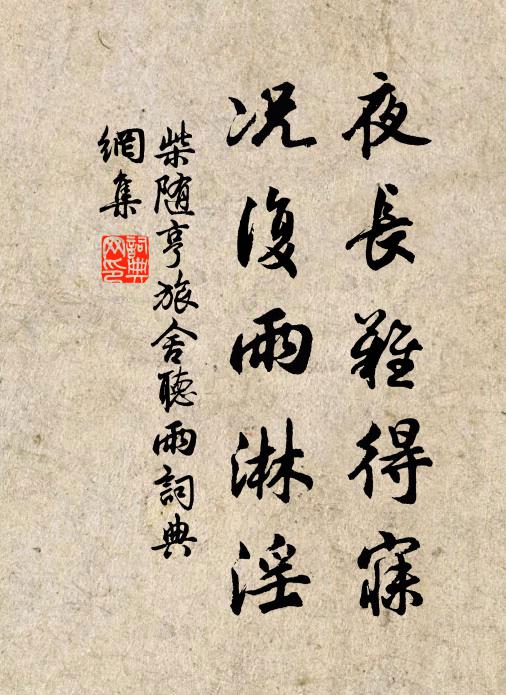 夜長難得寐
况復雨淋淫
柴随亨旅舍聽雨詞典
網集
詞典
网印